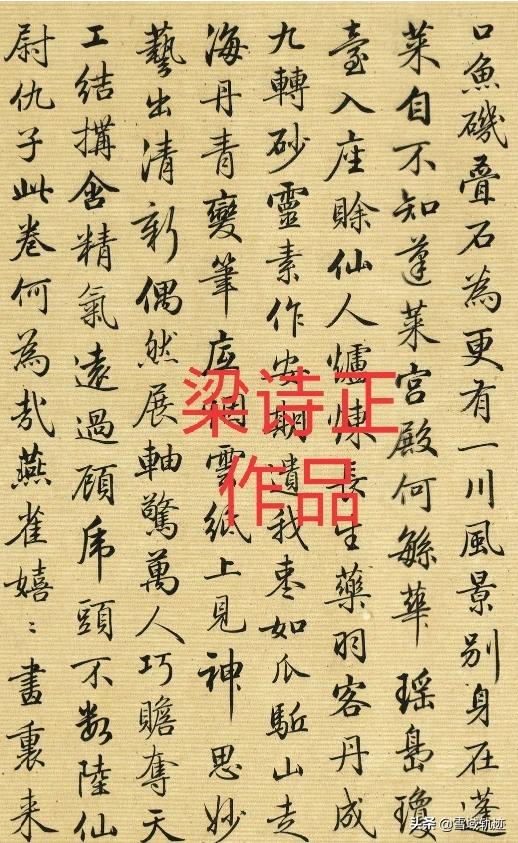 口魚磯疊石為更有一川風景别身在蓬
萊自不知蓬萊宮殿何緐華瑤島瓊
臺入座賒仙人爐煉長生藥羽客丹成
九轉砂靈素作安期遺我棗如瓜駈山走
海丹青變筆底烟雲紙上見神思妙
藝出清新偶然展軸驚萬人巧贍奪天
工結搆含精氣遠過顧虎頭不数陸仙
尉仇子此卷何為哉燕雀嬉〻畫裏来
梁诗正
作品
头条 @雪域轨迹